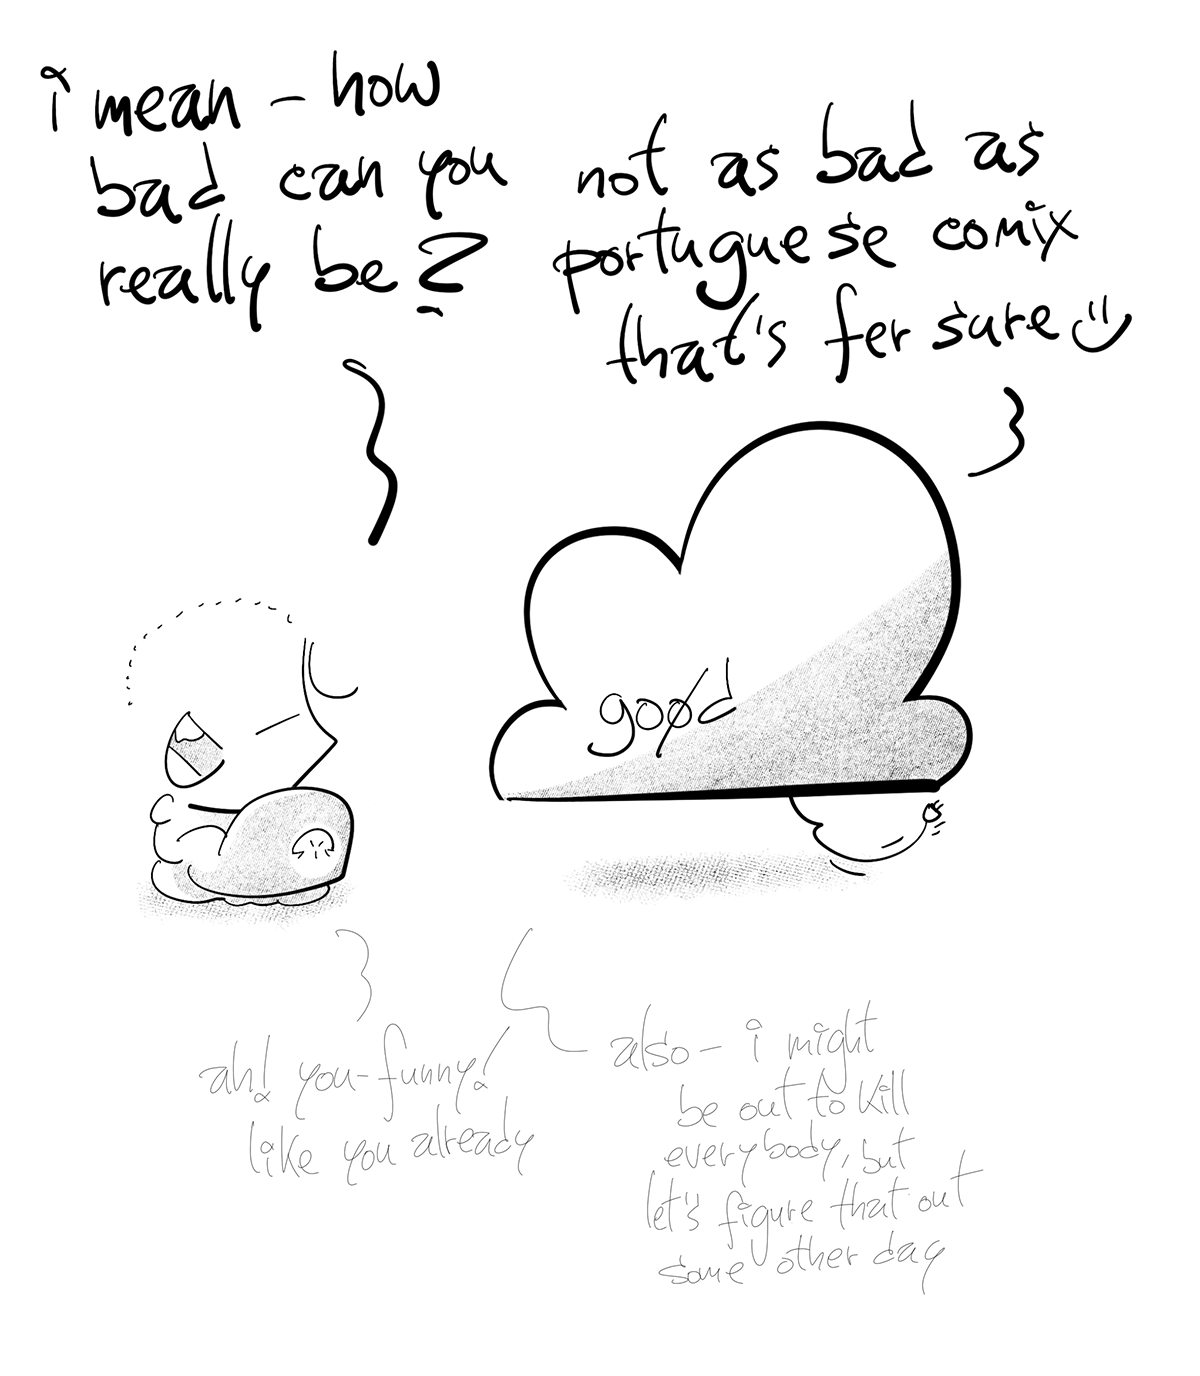 i mean – how
bad can you
really be?
not as bad as
portuguese comix
that's fer sure
goød
ah! you-funny!
like you already
also – i might
be out to kill
everybody, but
let's figure that out
some other day